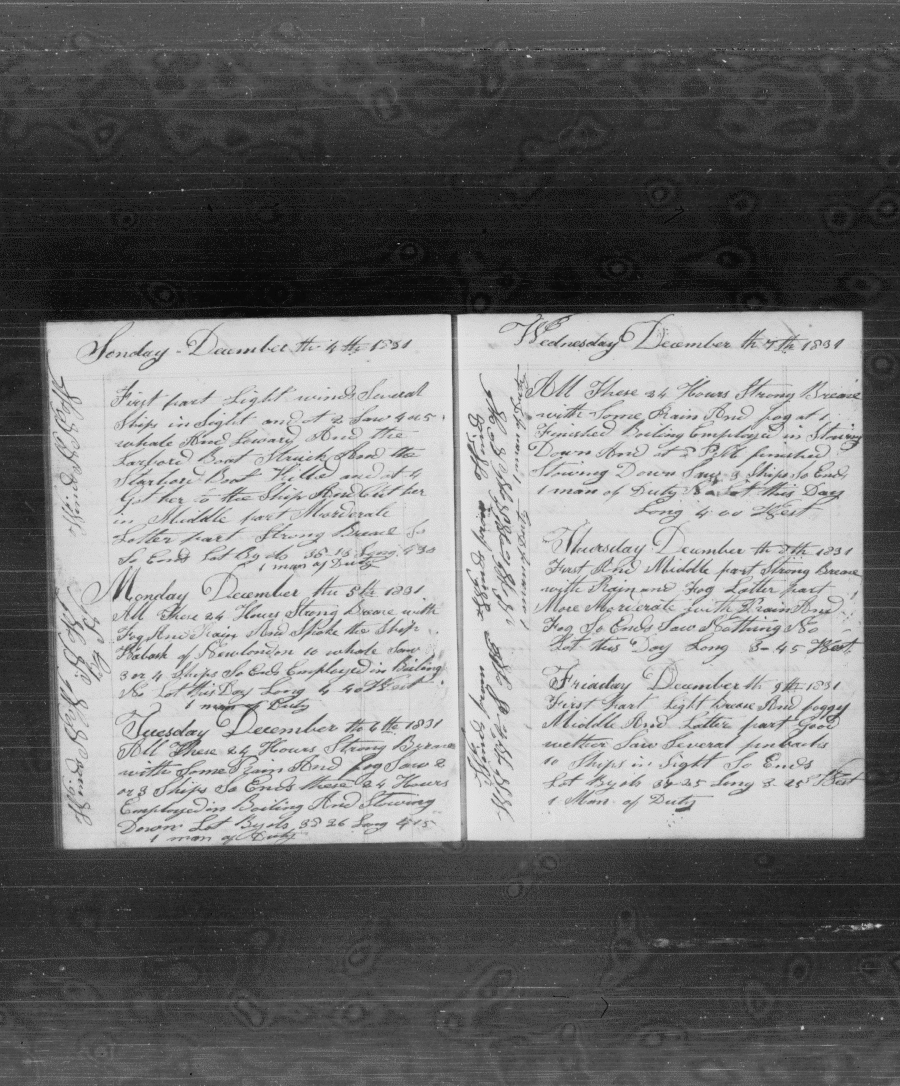 Sonday - December th 4th 1831
First part Light winds Several
Ships in Sight and At 2 Saw 4 or 5
whale And Loward And the
Larbord Boat Struck And the
Starbord Boat Killd and at 4
Got her to the Ship And Cut her
in Middle part Morderate
Latter part Strong Brease So
So Ends Lat By ob 35-13 Long 4 30
1 man of Duty
Monday December the 5th 1831
All These 24 Hours Strong Brease with
Fog And Rain And Spoke the Ship
of Newlondon 10 whale Saw
3 or 4 Ships So Ends Employed in Boiling
No Lat this Day Long 4 40 West
1 man of Duty
Tuesday December the 6th 1831
All These 24 Hours Strong
with Some Rain And fog Saw 2
or 3 Ships So Ends these 24 Hours
Employed in Boiling And Stowing
Down Lat By ob 35 26 Long 4 15
1 man of Duty
Wednesday December th 7th 1831
All These 24 Hours Strong Brease
with Some Rain And fog at 1
Finished Boiling Employed in Stowing
Down And at PM finished
Stowing Down Saw 3 Ships So Ends
1 man of Duty No Lat this Day
Long 4 00 West
Thursday December th 8th 1831
First And Middle part Strong Brease
with Rain and Fog Latter part
More Morderate with Rain And
Fog So Ends Saw Nothing No
Lat this Day Long 3-45 West
Friaday December th 9th 1831
First Part Light brease And foggy
Middle And Latter part Good
wether Saw Several finbacks
10 Ships in Sight So Ends
Lat By ob 35-25 Long 3-25 West
1 Man of Duty